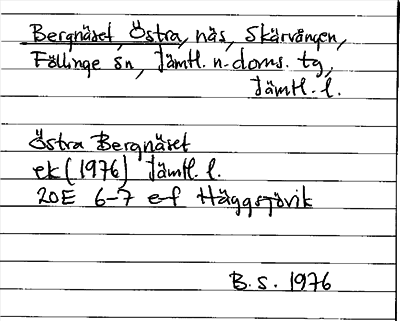 Bergnäset, Östra, näs, Skärvången,
Föllinge sn, Jämtl. n. doms. tg,
Jämtl. l.
Östra Bergnäset
ek (1976) Jämtl. l.
20E 6-7 e-f Häggsjövik
B. S. 1976